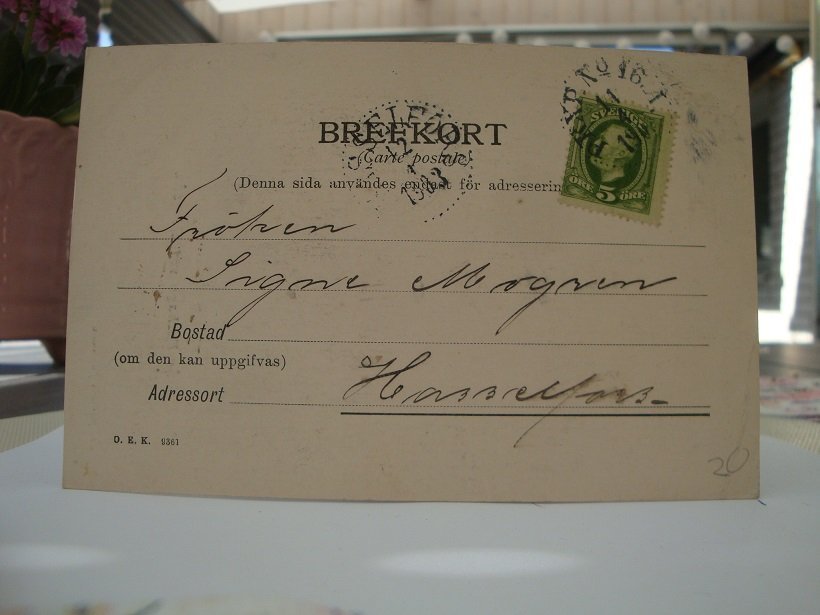 PKXP No 16. A
11
SVERIGE
BREFKORT
(Carte postale)
12
1
1903
(Denna sida användes endast för adressering
ÖRE 5 ÖRE
Fröken
Signe Mogren
Bostad
(om den kan uppgifvas)
Adressort Hasselfors
O. E. K. 9361
20